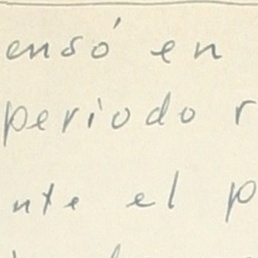 ensó en
periodo r
nte el p